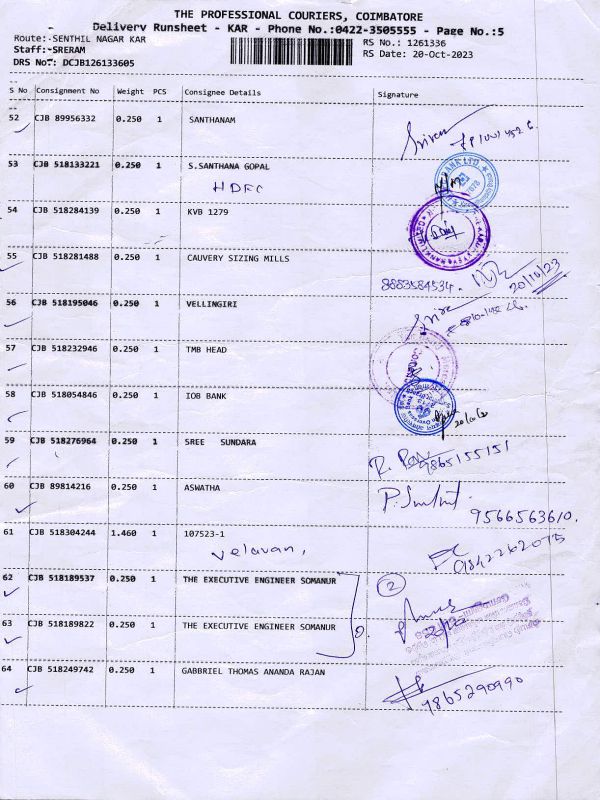 THE PROFESSIONAL COURIERS, COIMBATORE
Delivery Runsheet - KAR - Phone No.:0422-3505555 - Page No.:5
Route:-SENTHIL NAGAR KAR RS No.: 1261336
Staff:-SRERAM RS Date: 20-Oct-2023
DRS No.: DCJB126133605
S No Consignment No Weight PCS Consignee Details Signature
52 CJB 89956332 0.250 1 SANTHANAM
53 CJB 518133221 0.250 1 S.SANTHANA GOPAL
HDFC
54 CJB 518284139 0.250 1 KVB 1279
55 CJB 518281488 0.250 1 CAUVERY SIZING MILLS
8883584534. 20/10/23
56 CJB 518195046 0.250 1 VELLINGIRI
57 CJB 518232946 0.250 1 TMB HEAD
58 CJB 518054846 0.250 1 IOB BANK
59 CJB 518276964 0.250 1 SREE SUNDARA
9865155151
60 CJB 89814216 0.250 1 ASWATHA
9566563610.
61 CJB 518304244 1.460 1 107523-1
Velavan, 9842262075
62 CJB 518189537 0.250 1 THE EXECUTIVE ENGINEER SOMANUR 2
63 CJB 518189822 0.250 1 THE EXECUTIVE ENGINEER SOMANUR
64 CJB 518249742 0.250 1 GABBRIEL THOMAS ANANDA RAJAN
9865290990